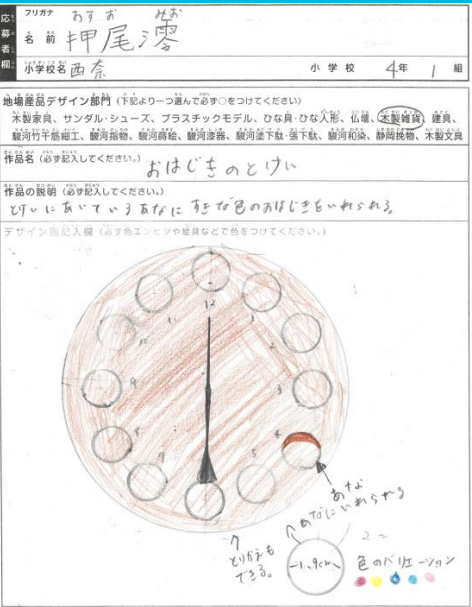 応募者欄
フリガナ おすお みお
名前 押尾澪
小学校名 西奈 小学校 4年 1組
地場産品デザイン部門（下記より一つ選んで必ず○をつけてください）
木製家具、サンダル・シューズ、プラスチックモデル、ひな具・ひな人形、仏壇、木製雑貨、建具、
駿河竹千筋細工、駿河指物、駿河蒔絵、駿河漆器、駿河塗下駄・張下駄、駿河和染、静岡挽物、木製文具
作品名（必ず記入してください。） おはじきのとけい
作品の説明（必ず記入してください。）
とけいにあいているあなに すきな色のおはじきをいれられる。
デザイン画記入欄（必ず色エンピツや絵具などで色をつけてください。）
12
1
3
4
5
8
9
11
あな
あなにいれられる
とりかえも
できる。
色のバリエーション